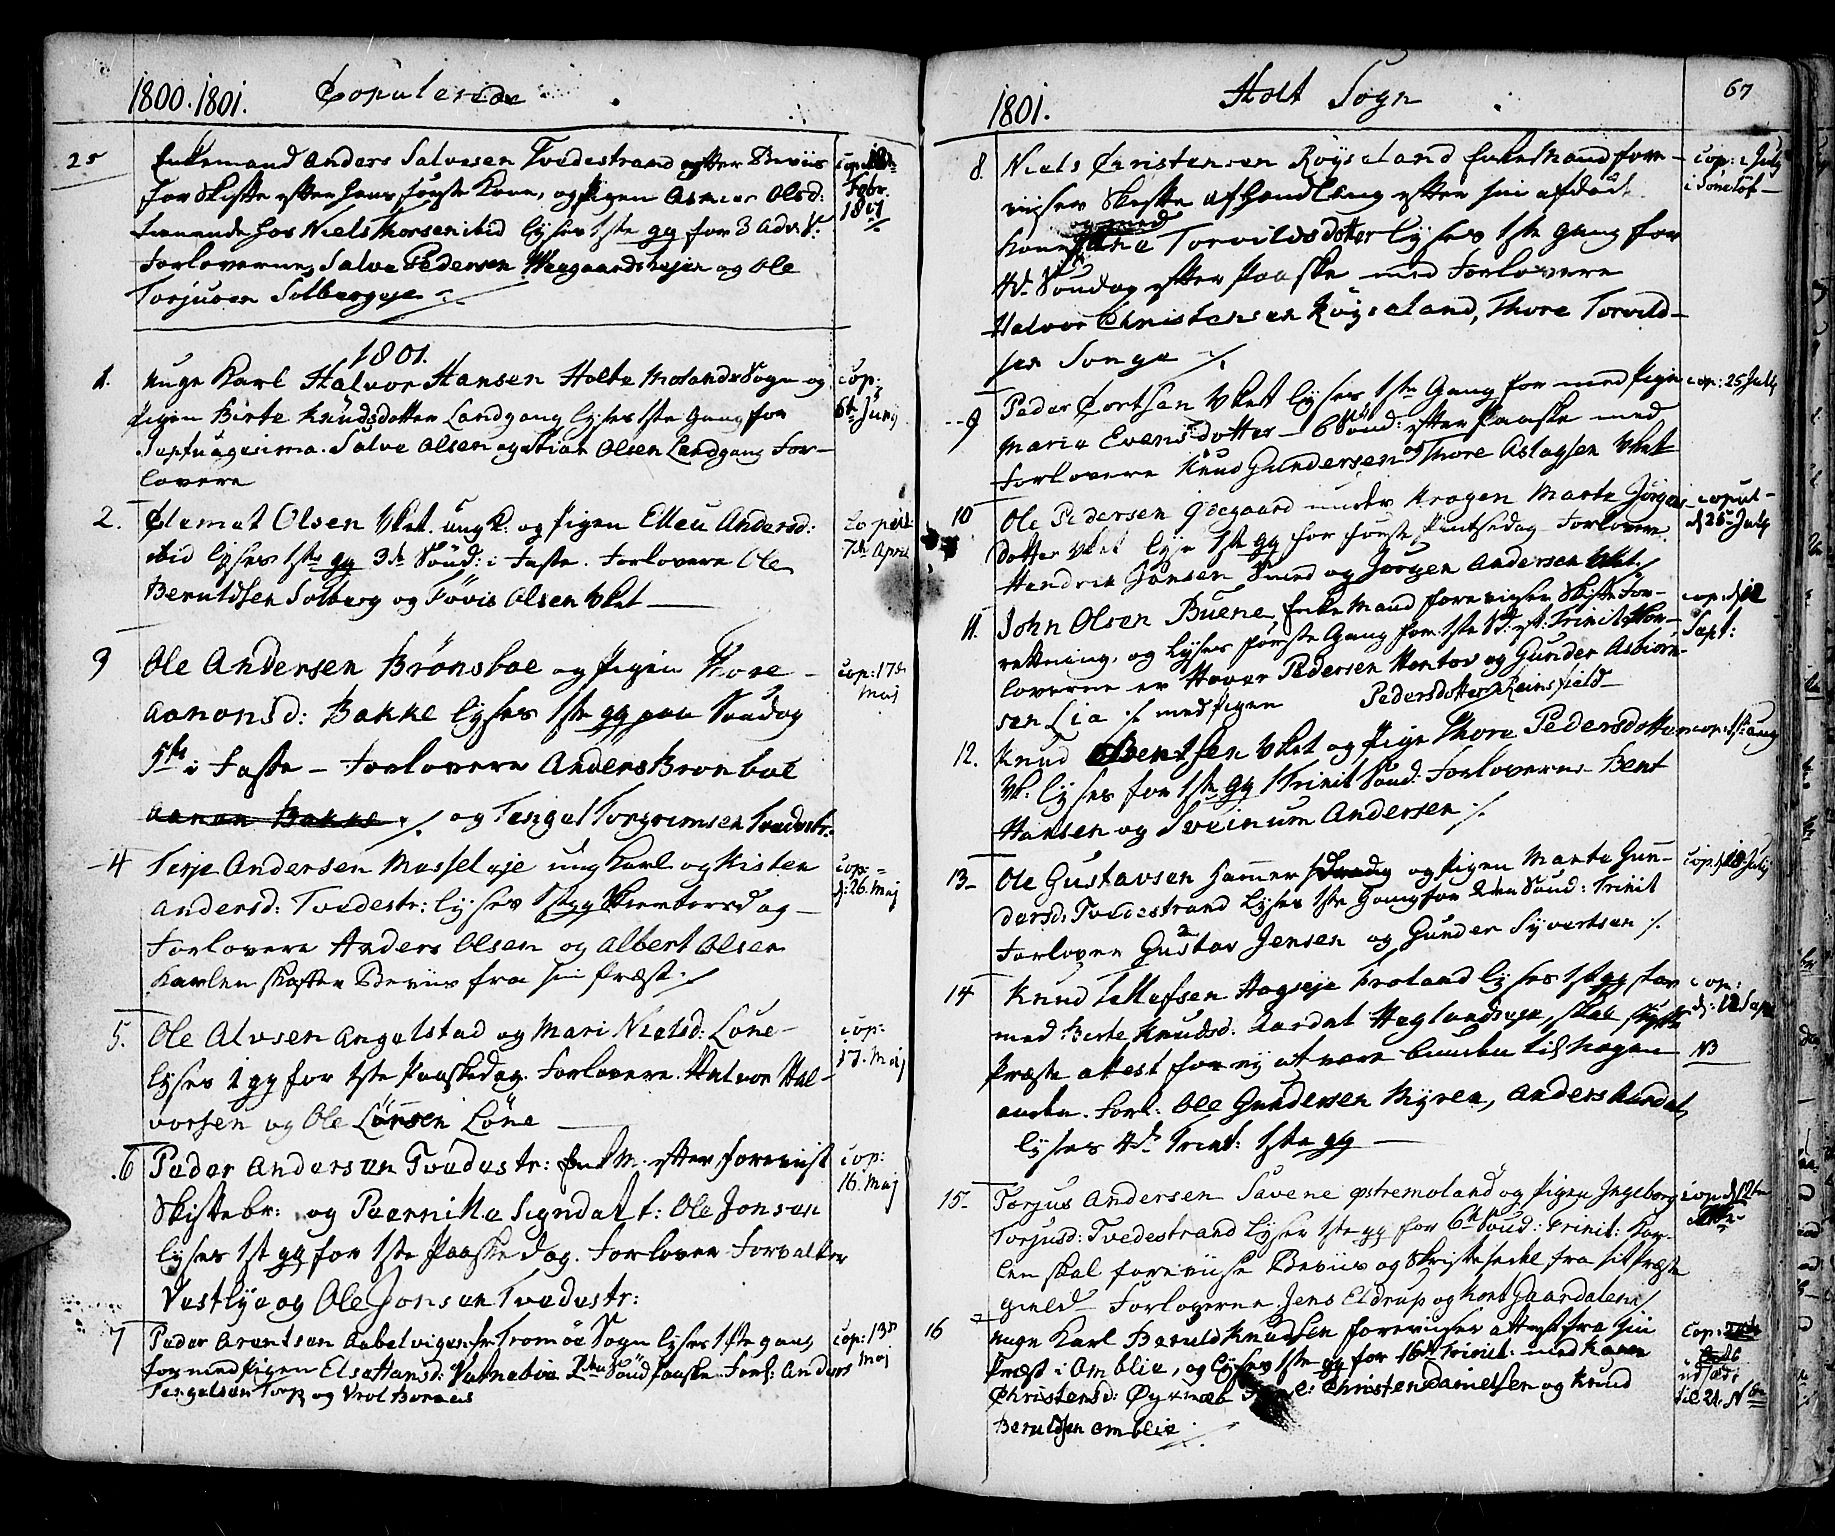 1800.1801. Copulerede
25 Enkemand Anders Salvesen Tvedestrand efter Beviis
for Skifte efter hans første Kone, og Pigen Asmor Olsd:
tienende hos Niels Thorsen ibid lyses 1ste gg for 3 Adv: S:
Forloverne Salve Pedersen og Ole
Torjusen Solbergeje
cop: 18de
Febr.
1801
1801.
1. unge Karl Halvor Hansen Holte Molands Sogn og
Pigen Birte Knudsdotter Landgang lyses 1ste Gang for
Septuagesima. Salve Olsen og Stian Olsen Landgang For-
lovere
cop:
6te Junij
2. Clemet Olsen Vket. ung K: og Pigen Ellen Andersd:
ibid lyses 1ste gg 3de Sønd: i Faste. Forlovere Ole
Beruldsen Solberg og Føvis Olsen Vket
Copul
7de April
3 Ole Andersen Brønsboe og Pigen Thore
Aanonsd: Bakke lyses 1ste gg paa Søndag
5te i Faste - Forlovere Anders Bronboe
Aanon Bakke og Tengel Torgrimsen Tvedestr:
cop: 17de
Maj
4 Terje Andersen Mosseleje ung Karl og Kisten
Andersd: Tvedestr: lyses 1ste gg Skiertorsdag
Forlovere Anders Olsen og Albert Olsen
Karlen skaffer Beviis fra sin Præst
cop:
d: 26. Maj
5. Ole Alvsen Angelstad og Mari Nielsd: Løne
lyses 1 gg for 1ste Paaskedag. Forlovere Halvor Hal-
vorsen og Ole Larsen Løne
cop:
17. Maj
6 Peder Andersen Tvedestr: Enk M. efter foreviist
Skiftebr: og Pernille Signdal t: Ole Jonsen
lyses 1st gg for 1ste Paaskedag. Forlover Forvalter
Vestlye og Ole Jonsen Tvedestr:
cop:
16. Maj
7 Peder Arentsen Aabelvigen fr Tromøe Sogn lyses 1ste gang
for med Pigen Else Hansd: 2den Sønd Paaske. Forl: Anders
Tengelsen Torp og Vrol Boraas
cop: 13de
Maj
1801. Holt Sogn 67
8. Niels Christensen Röyseland Enke Mand fore-
viiser Skifte afhandling efter sin afdøde
Kone og med Torvildsdotter lyses 1ste gang for
4de Søndag efter Paaske med Forlovere
Halvor Christensen Röyseland, Thore Torvild-
sen Songe
cop: 2 July
i Søndløs
9 Peder Cortsen Vket lyses 1ste Gang for med Pigen
Maria Evensdotter 6 Sønd: efter Paaske med
Forlovere Knud Gundersen og Thore Aslagsen Vket
cop: 25 July
10 Ole Pedersen Gdegaard under Kragen Marte Jørgens
dotter Vket lyse 1ste gg for første Pintsedag Forlovere
Hendrik Jansen Smed og Jørgen Andersen Vket
copul
d 25 July
11. John Olsen Buene, Enke Mand foreviiser Skifte For-
retning, og lyses første Gang for 1ste Sd: eft: Trinit: For-
loverne er Haver Pedersen Hantov og Gunder Asbiørn-
sen Lia med Pigen Pedersdotter Reinsfield
cop: d 12
Sept:
12. Knud Bentsen Vket og Pige Thore Pedersdotter
Vk: lyses for 1ste gg 1 Trinit Sønd: Forloverne Bent
Hansen og Sveinum Andersen
cop: 1ste aug
13 Ole Gustavsen Hammer og Pigen Marte Gun-
dersd: Tvedestrand lyses 1ste Gang for 2den Sønd: Trinit
Forlover Gustav Jensen og Gunder Syvertsen
cop: 18 July
14 Knud Tellefsen Hageje Froland lyses 1st gg for
med Birte Knudsd: Aardal Heglandseje, skal skaffe
Præste attest for ej at være bunden til nogen
anden. Forl: Ole Gundersen Myren, Anders Aardal
lyses 4de Trinit: 1ste gg
cop:
d: 12 Sept
NB
15. Torjus Andersen Savene Østremoland og Pigen Ingeborg
Torjusd: Tvedestrand lyses 1ste gg for 6te Sønd: Trinit: Kar-
len skal foreviise Beviis og Skriftesedel fra sit Præste
gield - Forloverne Jens Eldrup og Kort Gaardalen
cop: d 12te
16 unge Karl Beruld Knudsen foreviiser attest fra sin
Præst i Omblie, og lyses 1ste gg for 16de Trinit: med Karen
Christensd: Øyemæl Forl: Christen Danielsen og Knud
Beruldsen Omblie
cop:
udsat
til 21. N